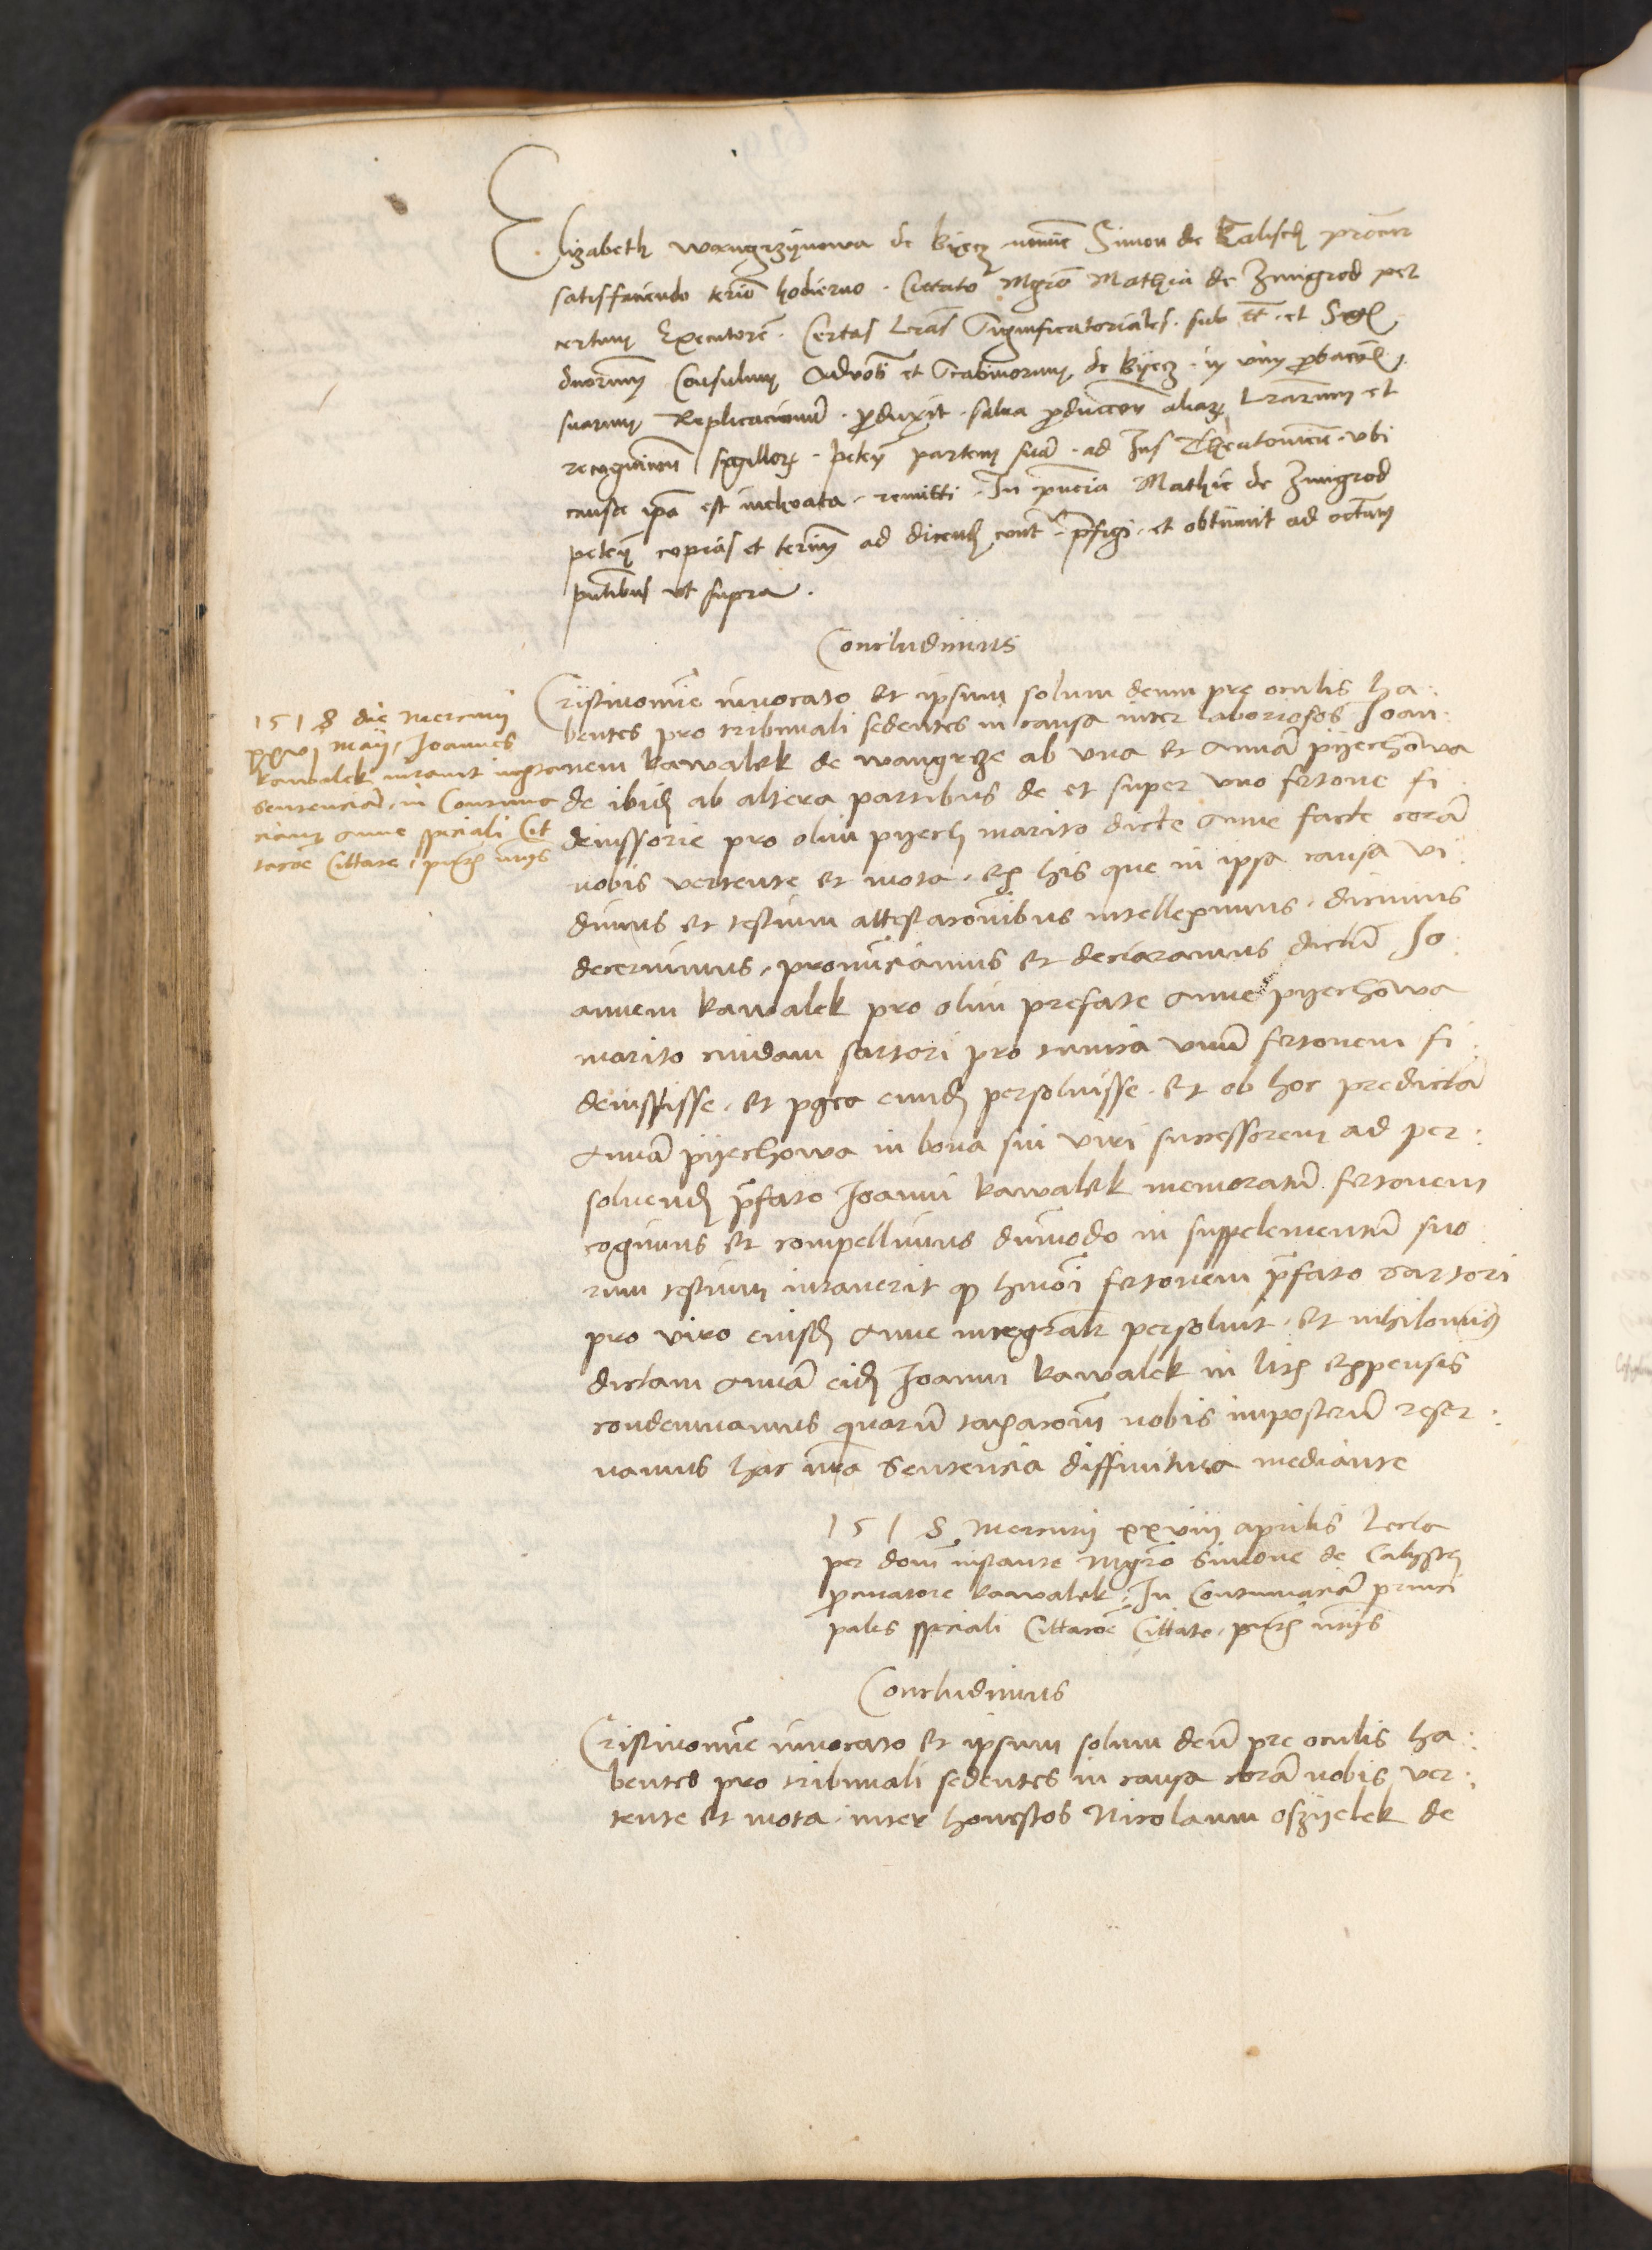 Elizabeth Wxngrzijnowa de Byecz noīe Simon de Kalisch procur
satisfaciendo termīo hodierno. Cittato Mgrō Mathia de Zmigrod per
certum Executorē. Certas Lras Significatoriales. sub tt. et Sigl
dnorum Consulum Advoti et Scabinorum de Byecz. in vim probacōl
suarum Replicacionū. produxit. salva produccōn aliarum Lrarum et
recognicōn sigillorum. petēn partem suā. ad Jus Theutonicū. ubi
causa ipā est inchoata. remitti. In pñcia Mathie de Zmigrod
petēn copias et termīn ad dicend contra prefigi. et obtinuit ad octavam
pñtibus ut supra.
Concludimus
Cristinomīe invocato et ipsum solum deum pre oculis ha:
bentes pro tribunali sedentes in causa inter laboriosos Joan:
nem Kawalek de Wangrze ab una et Annā pijechowa
de ibid ab altera partibus de et super uno fertone fi
deiussorie pro olim pijech marito dicte Anne facte corā
nobis vertente et mota. ex his que in ipsa causa vi:
dimus et testium attestacōnibus intelleximus. dicimus
decernimus, pronūciamus et declaramus dictū Jo
annem Kawalek pro olim prefate Anne pijechowa
marito cuidam sartori pro tunica unū fertonem fi:
deiussisse. et postea eundē persoluisse. et ob hoc predictā
Annā pijechowa in bona sui viri successorem ad per:
soluend prefato Joanni Kawalek memoratū fertonem
cogimus et compellimus dūmodo in supplementū suo
rum testium iuraverit quod hmōi fertonem prefato sartori
pro viro eiusd Anne integralr persoluit. et nihilominus
dictam Annā eidē Joanni Kawalek in litis expensis
condemnamus quarū taxacōm nobis imposterū reser:
vamus hac nra Sentencia diffinitiva mediante
1518 die Mercurij
xxvi Maij, Joannes
Kawalek iuravit iuxta
sentenciā, in Contuma
ciam Anne speciali Cit
tacōe Cittate, pntibs
1518 Mercurij xxviij aprilis Lecta
per dom instante Mgrō Simone de Calysch
procuratore Kawalek. In Contumaciā princi
palis speciali Cittacōe Cittate. pntibs
Concludimus
Cristinomīe invocato et ipsum solum deū pre oculis ha:
bentes pro tribunali sedentes in causa corā nobis ver:
tente et mota. inter honestos Nicolaum Oszijelek de